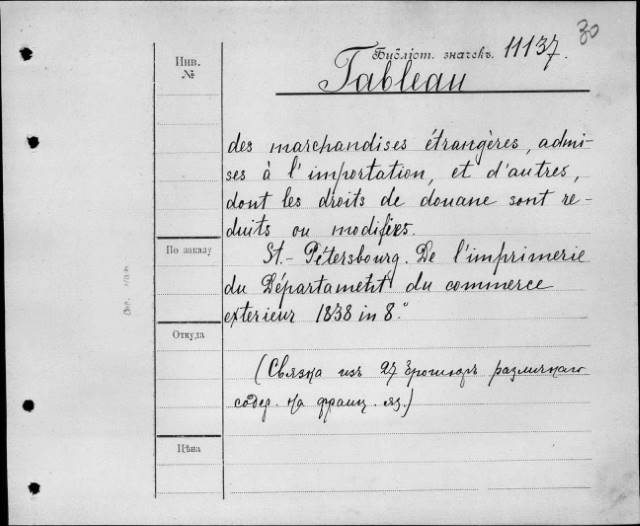 30
Инв. №
Библіот. значекъ. 11137.
Tableau
des marchandises étrangères, admi-
ses à l'importation, et d'autres,
dont les droits de douane sont re-
duits ou modifiés.
По заказу
St.- Pétersbourg. De l'imprimerie
du Départament du commerce
exterieur 1838 in 8.°
Откуда
(Связка изъ 27 брошюръ различнаго
содер. на франц. яз.)
Цѣна